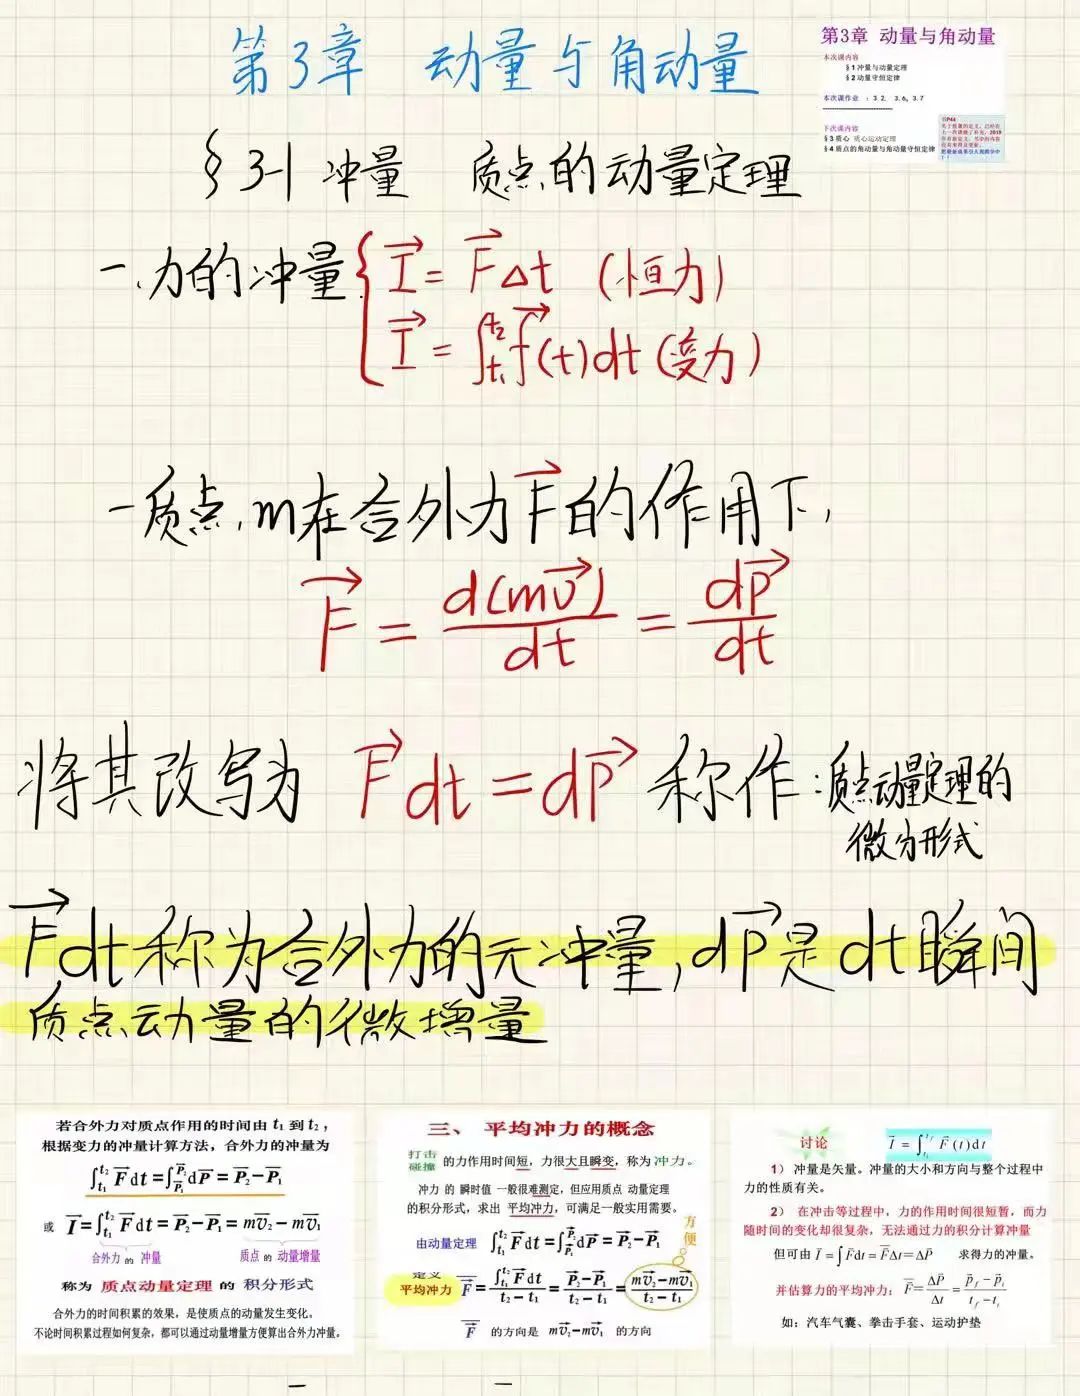 第3章 动量与角动量
第3章 动量与角动量
本次课内容
§1冲量与动量定理
§2动量守恒定律
本次课作业 ：3.2, 3.6, 3.7
下次课内容
§3质心 质心运动定理
§4质点的角动量与角动量守恒定律
§3-1 冲量 质点的动量定理
一.力的冲量 { I⃗ = F⃗Δt (恒力)
I⃗ = ∫_{t₁}^{t₂} f⃗(t)dt (变力)
一质点m在合外力F⃗的作用下,
F⃗ = d(mv⃗)/dt = dp⃗/dt
将其改写为 F⃗dt = dp⃗ 称作:质点动量定理的
微分形式
F⃗dt称为合外力的元冲量,dp⃗是dt瞬间
质点动量的微增量
若合外力对质点作用的时间由 t₁ 到 t₂，
根据变力的冲量计算方法，合外力的冲量为
∫_{t₁}^{t₂} F⃗dt = ∫_{P⃗₁}^{P⃗₂} dP⃗ = P⃗₂ − P⃗₁
或 I⃗ = ∫_{t₁}^{t₂} F⃗dt = P⃗₂ − P⃗₁ = mv⃗₂ − mv⃗₁
合外力 的 冲量 质点 的 动量增量
称为 质点动量定理 的 积分形式
合外力的时间积累的效果，是使质点的动量发生变化。
不论时间积累过程如何复杂，都可以通过动量增量方便算出合外力冲量。
三、 平均冲力的概念
打击
碰撞 的力作用时间短，力很大且瞬变，称为 冲力。
冲力 的 瞬时值 一般很难测定，但应用质点 动量定理
的积分形式，求出 平均冲力，可满足一般实用需要。
方便
由动量定理 ∫_{t₁}^{t₂} F⃗dt = ∫_{P⃗₁}^{P⃗₂} dP⃗ = P⃗₂ − P⃗₁
定义
平均冲力 F̅⃗ = ∫_{t₁}^{t₂} F⃗dt/(t₂ − t₁) = (P⃗₂ − P⃗₁)/(t₂ − t₁) = (mv⃗₂ − mv⃗₁)/(t₂ − t₁)
F̅⃗ 的方向是 mv⃗₂ − mv⃗₁ 的方向
讨论 I⃗ = ∫_{t_i}^{t_f} F⃗(t)dt
1） 冲量是矢量。冲量的大小和方向与整个过程中
力的性质有关。
2） 在冲击等过程中，力的作用时间很短暂，而力
随时间的变化却很复杂，无法通过力的积分计算冲量
但可由 I⃗ = ∫F⃗dt = F̅⃗Δt = ΔP⃗ 求得力的冲量。
并估算力的平均冲力： F̅⃗ = ΔP⃗/Δt = (p⃗_f − p⃗_i)/(t_f − t_i)
如：汽车气囊、拳击手套、运动护垫